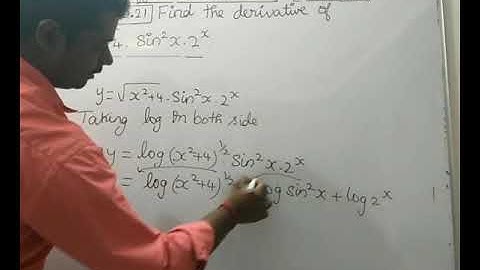 21 Find the derivative of
4. Sin²x.2ˣ
y=√x²+4 . Sin²x.2ˣ
Taking log in both side
y = log (x²+4)^½ Sin²x.2ˣ
= log (x²+4)^½ log sin²x + log 2ˣ